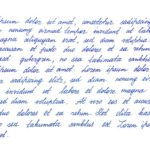 ipsum dolor sit amet, consetetur sadipscing
nonumy eirmod tempor invidunt ut labore
magna aliquyam erat, sed diam voluptua
accusam et justo duo dolores et ea rebum
gubergren, no sea takimata sanctus
ipsum dolor sit amet. Lorem ipsum dolor
sadipscing elitr, sed diam nonumy
invidunt ut labore et dolore magna
sed diam voluptua. At vero eos et accusam
dolores et ea rebum. Stet clita kasd
no sea takimata sanctus est Lorem ipsum
amet.